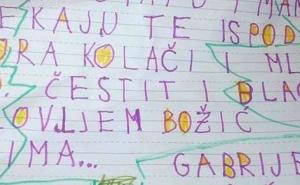 EKAJU TE ISPOD
ORA KOLAČI I ML
. ČESTIT I BLA
OVLJEM BOŽIĆ
IMA... GABRIJE